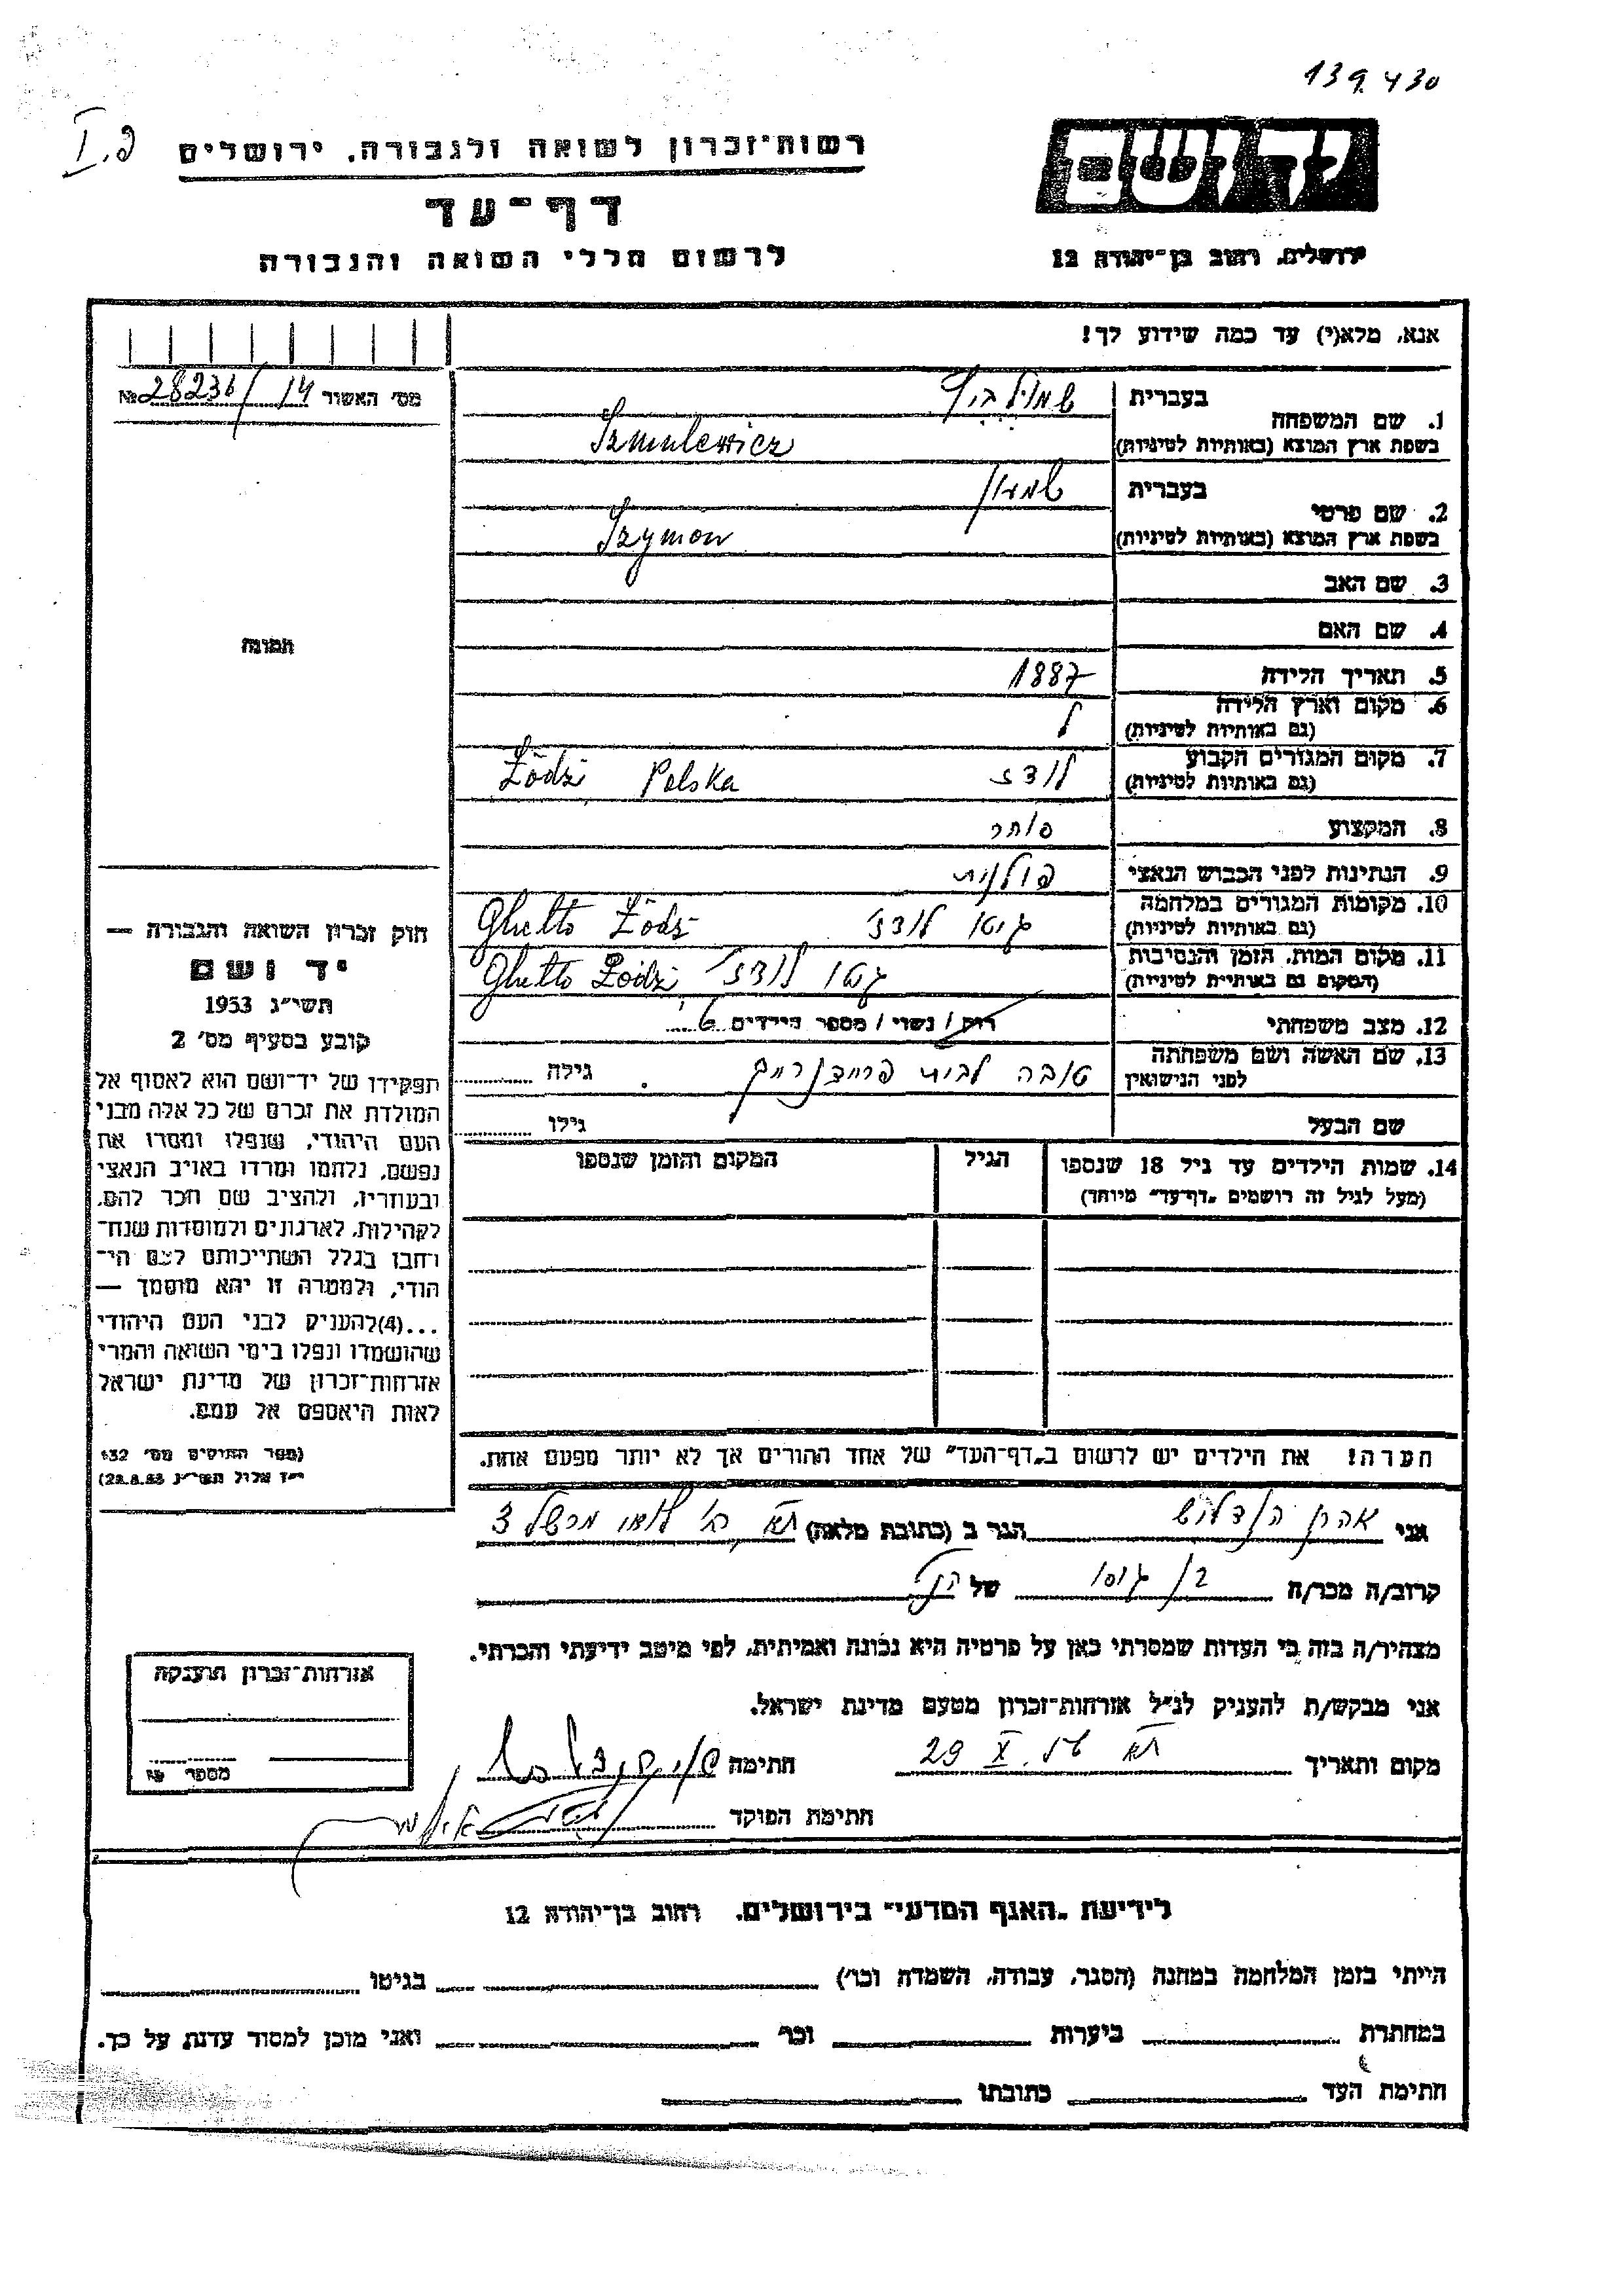 139.430
רשות־זכרון לשואה ולגבורה, ירושלים
I
יד ושם
דף־עד
ירושלים, רחוב בן־יהודה 12
לרשום חללי השואה והגבורה
אנא, מלא(י) עד כמה שידוע לך!
מס' האשור 14/28236 №
1. שם המשפחה
בעברית שמולביץ
בשפת ארץ המוצא (באותיות לטיניות) Szmulewicz
2. שם פרטי
בעברית שמעון
בשפת ארץ המוצא (באותיות לטיניות) Szymon
3. שם האב
4. שם האם
5. תאריך הלידה 1887
6. מקום וארץ הלידה
(גם באותיות לטיניות)
7. מקום המגורים הקבוע לודז Łódź Polska
(גם באותיות לטיניות)
8. המקצוע סוחר
9. הנתינות לפני הכבוש הנאצי פולנית
10. מקומות המגורים במלחמה גיטו לודז' Ghetto Łódź
(גם באותיות לטיניות)
11. מקום המות, הזמן והנסיבות גטו לודז' Ghetto Łódź
(המקום גם באותיות לטיניות)
12. מצב משפחתי רוק / נשוי / מספר הילדים
13. שם האשה ושם משפחתה טובה לבית גילה
לפני הנישואין
שם הבעל גילו
14. שמות הילדים עד גיל 18 שנספו הגיל המקום והזמן שנספו
(מעל לגיל זה רושמים "דף־עד" מיוחד)
הערה! את הילדים יש לרשום ב"דף־העד" של אחד ההורים אך לא יותר מפעם אחת.
תמונה
חוק זכרון השואה והגבורה —
יד ושם
תשי"ג 1953
קובע בסעיף מס' 2
תפקידו של יד־ושם הוא לאסוף אל
המולדת את זכרם של כל אלה מבני
העם היהודי, שנפלו ומסרו את
נפשם, נלחמו ומרדו באויב הנאצי
ובעוזריו, ולהציב שם וזכר להם,
לקהילות, לארגונים ולמוסדות שנח־
רבו בגלל השתייכותם לעם הי־
הודי, ולמטרה זו יהא מוסמך —
...(4) להעניק לבני העם היהודי
שהושמדו ונפלו בימי השואה והמרי
אזרחות־זכרון של מדינת ישראל
לאות היאספם אל עמם.
(ספר החוקים מס' 132
י"ז אלול תשי"ג 28.8.53)
אני אהרן הגר ב (כתובת מלאה) תא רח' לואי מרשל 3
קרוב/ה מכר/ה בן גיסו של הנ"ל
מצהיר/ה בזה כי העדות שמסרתי כאן על פרטיה היא נכונה ואמיתית, לפי מיטב ידיעתי והכרתי.
אני מבקש/ת להעניק לנ"ל אזרחות־זכרון מטעם מדינת ישראל.
מקום ותאריך תא 29 X חתימה
חתימת הפוקד
אזרחות־זכרון הוענקה
מספר
לידיעת "האגף המדעי" בירושלים, רחוב בן־יהודה 12
הייתי בזמן המלחמה במחנה (הסגר, עבודה, השמדה וכו') בגיטו
במחתרת ביערות וכו' ואני מוכן למסור עדות על כך.
חתימת העד כתובתו